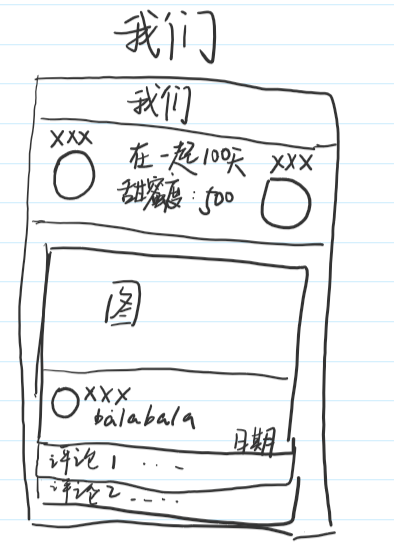 我们
我们
xxx
在一起100天
xxx
甜蜜度:500
图
xxx
balabala
日期
评论1 ...-
评论2 ----